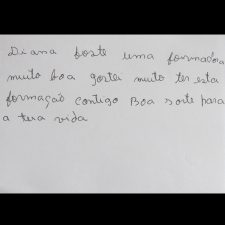 Diana foste uma formadora
muito boa gostei muito ter esta
formação contigo Boa sorte para
a tua vida